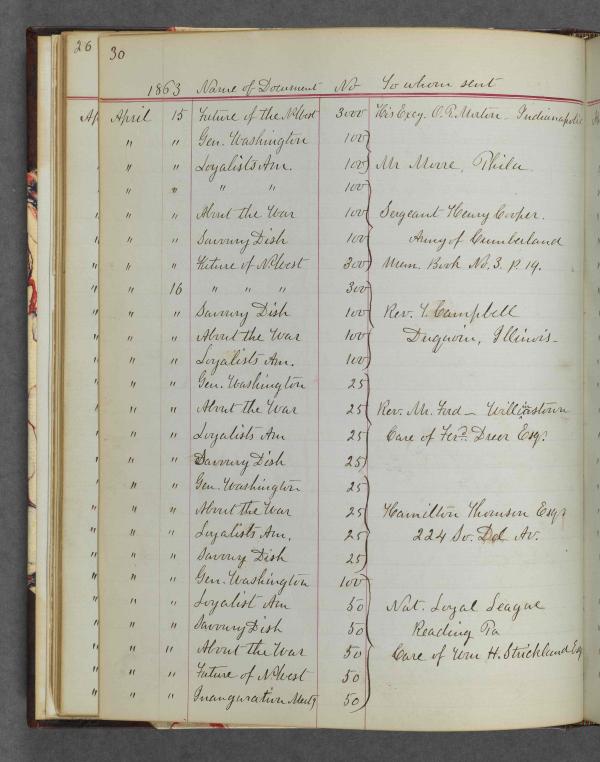 26
30
1863 Name of Document No To whom sent
Ap April 15 Future of the N. West 3000 His Excy. O. P. Morton - Indianapolis
" " Gen. Washington 100
" " Loyalists Am. 100 Mr Moore, Phila
" " " " 100
" " About the War 100 Sergeant Henry Cooper.
" " Savoury Dish 100 Army of Cumberland
" " Future of N. West 300 Mem. Book No. 3. p. 19.
" 16 " " " 300
" " Savoury Dish 100 Rev. Y. Campbell
" " About the War 100 Duquoin, Illinois -
" " Loyalists Am. 100
" " Gen. Washington 25
" " About the War 25 Rev. Mr. Ford - Williastown
" " Loyalists Am 25 Care of Ferd. Dreer Esq.
" " Savoury Dish 25
" " Gen. Washington 25
" " About the War 25 Hamilton Thomson Esqr
" " Loyalists Am, 25 224 So. Del Av.
" " Savoury Dish 25
" " Gen. Washington 100
" " Loyalist Am 50 Nat. Loyal League
" " Savoury Dish 50 Reading Pa
" " About the War 50 Care of Wm H. Strickland Esq
" " Future of N. West 50
" " Inauguration Meetg 50